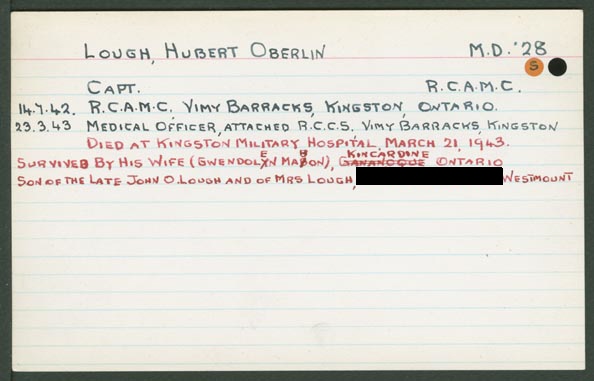 LOUGH, HUBERT OBERLIN M.D. '28
S
CAPT. R.C.A.M.C.
14.7.42. R.C.A.M.C. VIMY BARRACKS, KINGSTON, ONTARIO.
23.3.43 MEDICAL OFFICER, ATTACHED R.C.C.S. VIMY BARRACKS, KINGSTON
DIED AT KINGSTON MILITARY HOSPITAL, MARCH 21, 1943.
KINCARDINE
SURVIVED BY HIS WIFE (GWENDOLEN MABON), GANANOQUE ONTARIO
SON OF THE LATE JOHN O. LOUGH AND OF MRS LOUGH, WESTMOUNT